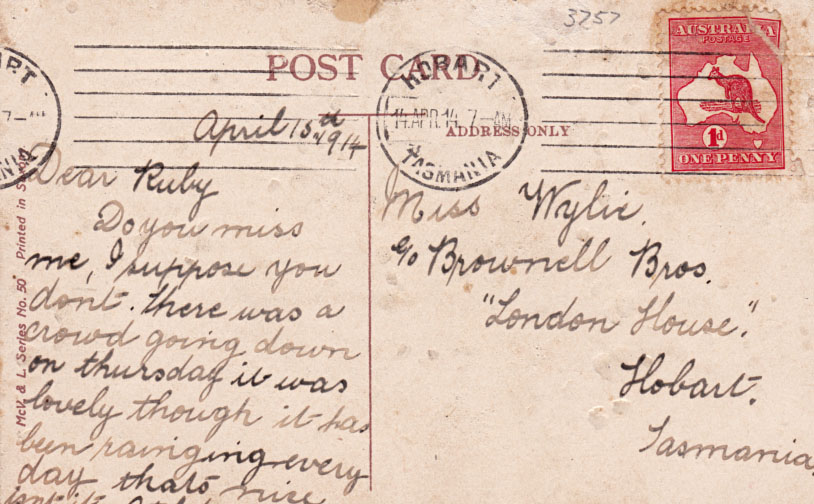 3757
AUSTRALIA
POSTAGE
1d
ONE PENNY
POST CARD
HOBART
14 APR. 14 7-AM
TASMANIA
ADDRESS ONLY
April 15th
1914
Dear Ruby
Do you miss
me, I suppose you
dont. there was a
crowd going down
on thursday it was
lovely though it has
been rainging every
day thats nice
isnt it
Miss Wylie.
c/o Brownell Bros.
"London House".
Hobart.
Tasmania.
McV. & L. Series No. 50 Printed in